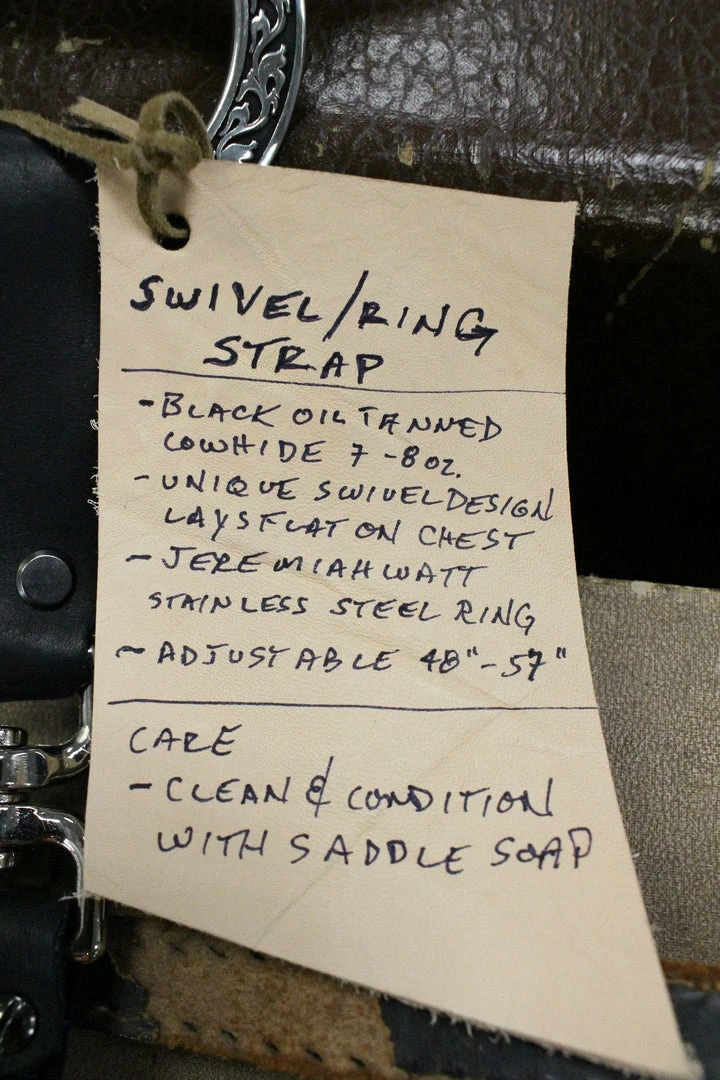 SWIVEL/RING
STRAP
-BLACK OIL TANNED
COWHIDE 7-8 oz.
-UNIQUE SWIVEL DESIGN
LAYS FLAT ON CHEST
-JEREMIAH WATT
STAINLESS STEEL RING
-ADJUSTABLE 48"-57"
CARE
-CLEAN & CONDITION
WITH SADDLE SOAP